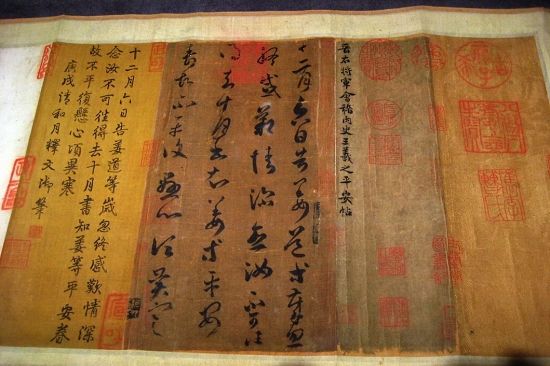 晉右將軍會稽内史王羲之平安帖
十二月六日告姜道等歲忽
終感歎情深念汝不可往
得去十月書知姜等平安
春故不平復懸心頃異寒
十二月六日告姜道等歲忽終感歎情深
念汝不可往得去十月書知姜等平安春
故不平復懸心頃異寒
庚戌清和月釋文御筆